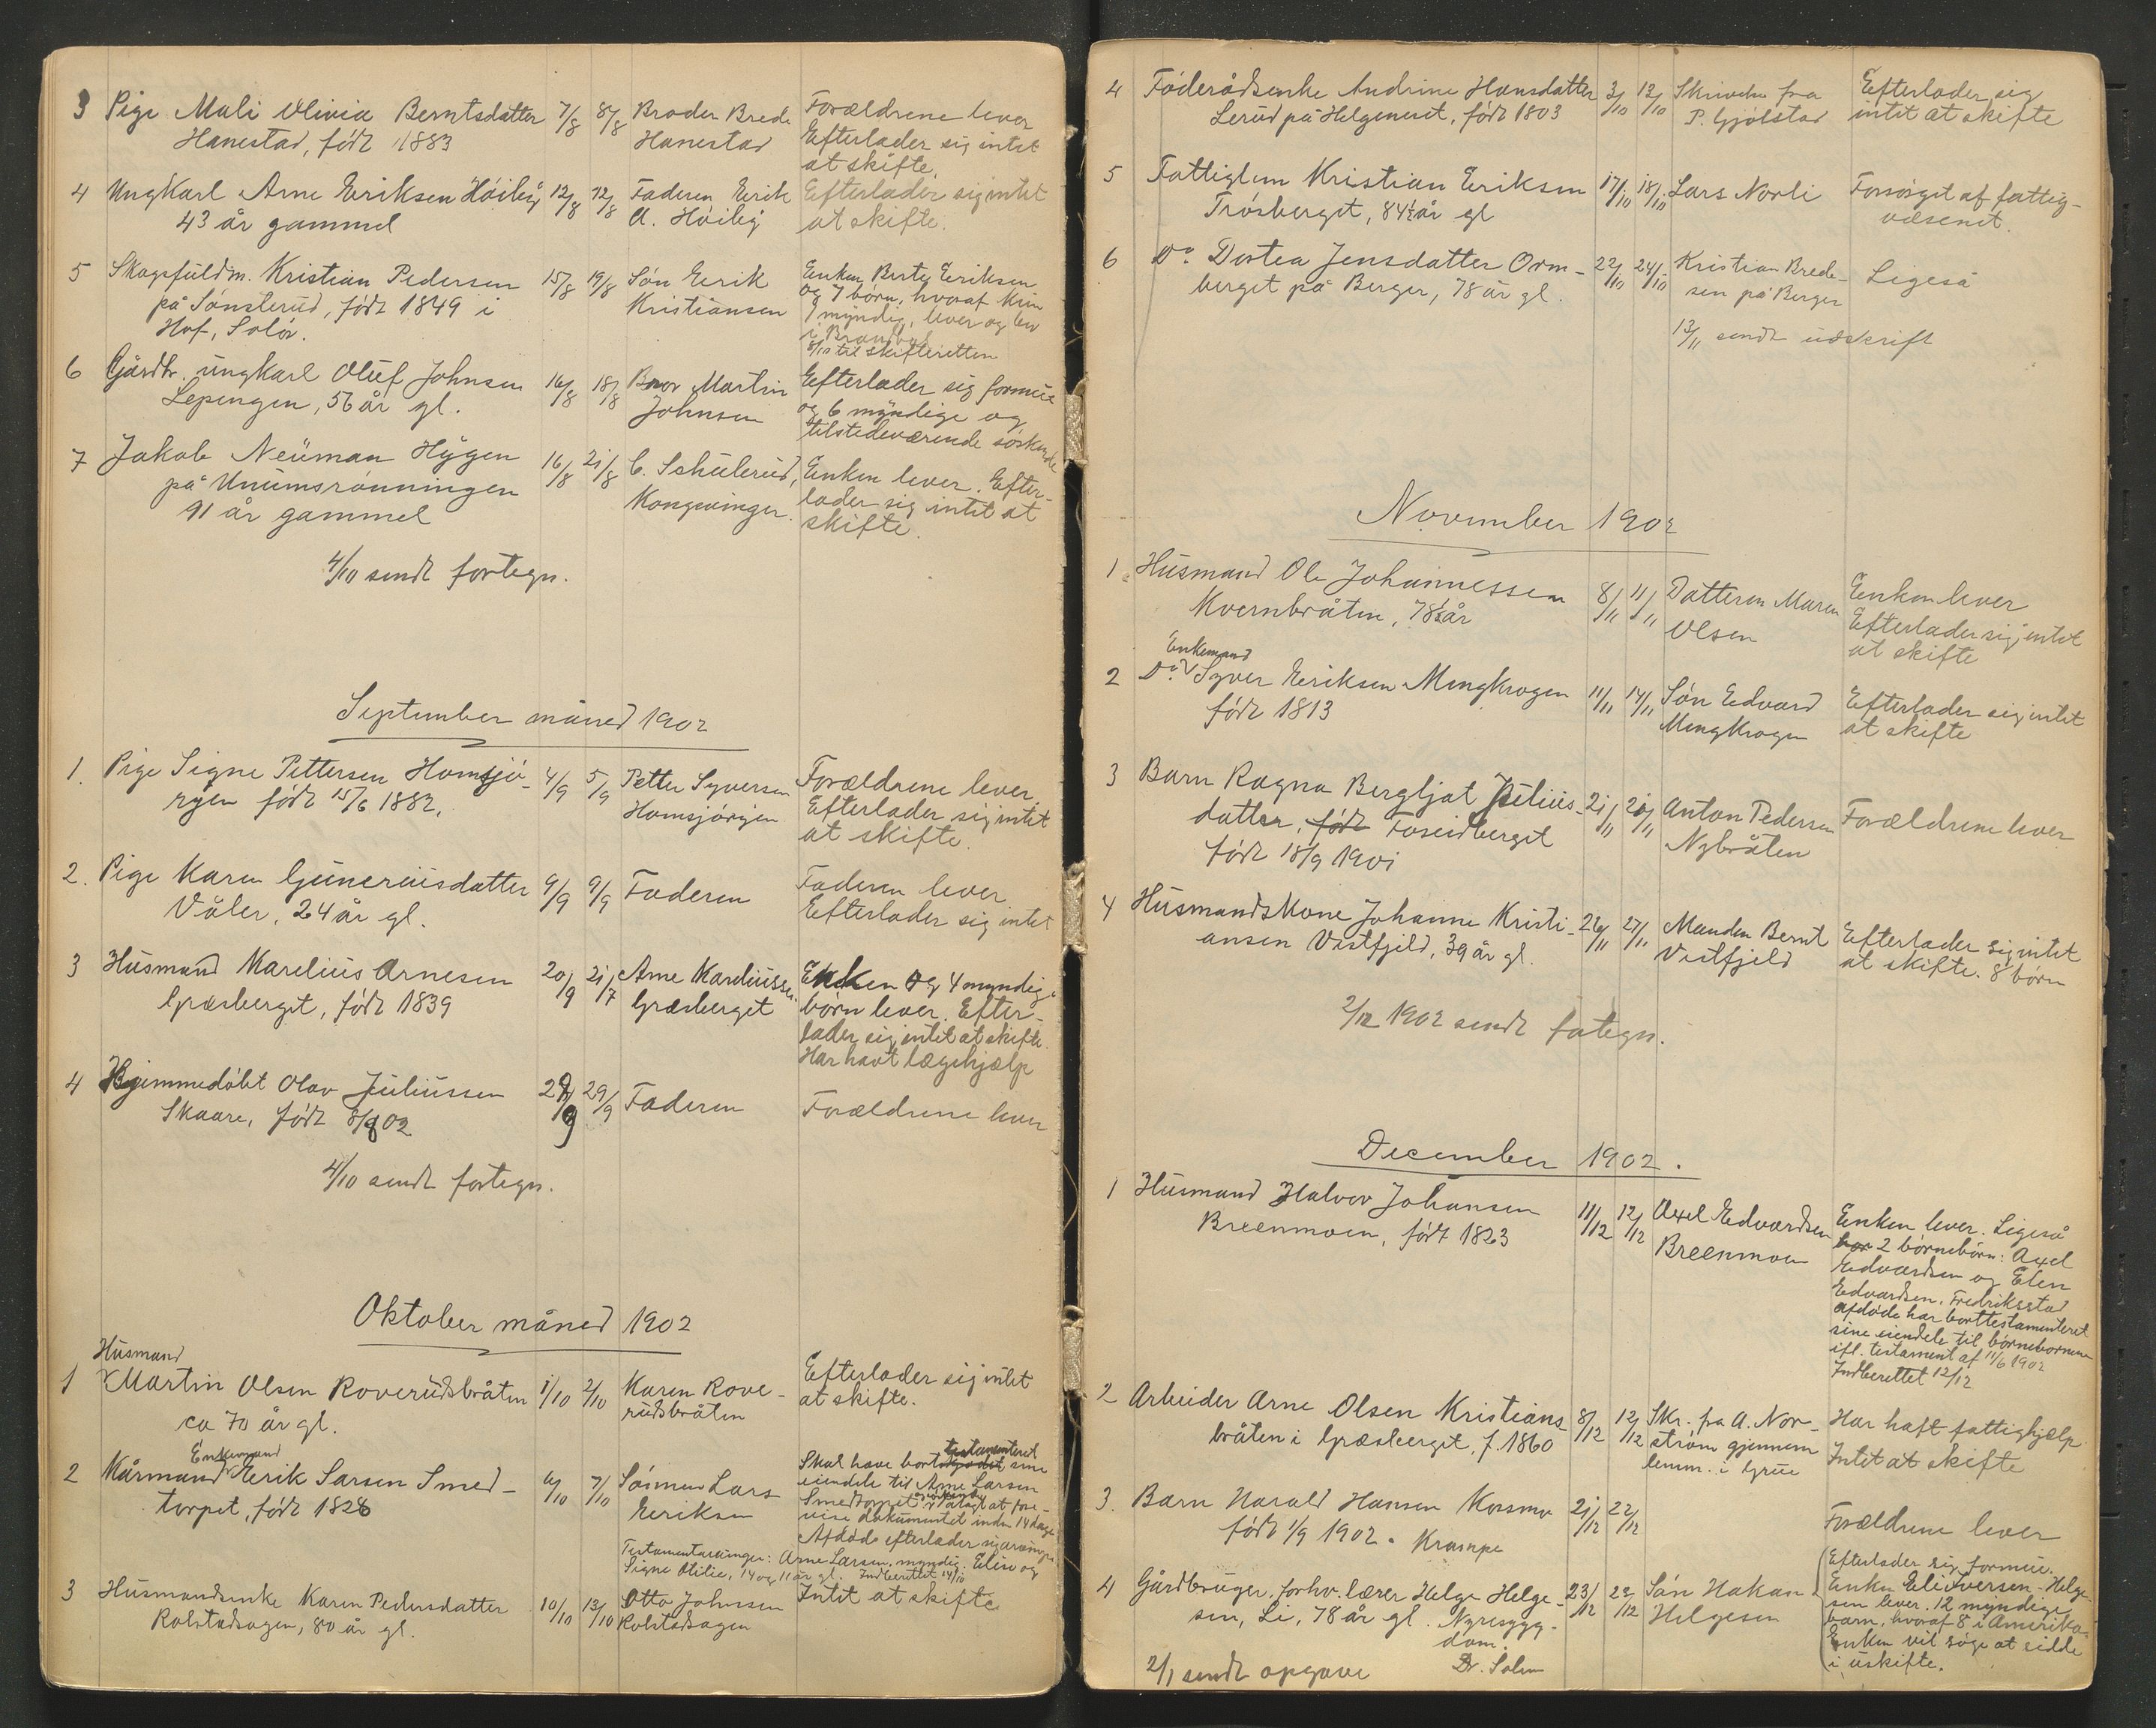 3 Pige Mali Olivia Berntsdatter 7/8 8/8 Broder Brede Forældrene lever
Hanestad, født 1883 Hanestad Efterlader sig intet
at skifte.
4 Ungkarl Arne Eriksen Høiby 12/8 12/8 Faderen Erik Efterlader sig intet
43 år gammel A. Høiby at skifte.
5 Skogsfuldm. Kristian Pedersen 15/8 19/8 Søn Eerik Enken Berte Eeriksen
på Sønsterud, født 1849 i Kristiansen og 7 børn, hvoraf kun
Hof, Solør. 1 myndig, lever og bor
i Brandval
8/10 til skifteretten
6 Gårdbr. ungkarl Oluf Johnsen 16/8 18/8 Bror Martin Efterlader sig formue
Lepengen, 56 år gl. Johnsen og 6 myndige og
tilstedeværende søskende
7 Jakob Neuman Hygen 16/8 21/8 C. Schulerud, Enken lever. Efter-
på Unumsrønningen Kongsvinger. lader sig intet at
91 år gammel skifte.
4/10 sendt fortegn.
September måned 1902
1. Pige Signe Pettersen Homsjø- 4/9 5/9 Petter Syversen Forældrene lever
ryen født 15/6 1882. Homsjøryen Efterlader sig intet
at skifte.
2. Pige Karen Guneriusdatter 9/9 9/9 Faderen Faderen lever
Våler, 24 år gl. Efterlader sig intet
3 Husmand Karelius Arnesen 20/9 21/7 Arne Kareliussen Enken og 4 myndige
Græsberget, født 1839 Græsberget børn lever. Efter-
lader sig intet at skifte.
Har havt lægehjælp
4 Hjemmedøbt Olav Juliussen 29/9 29/9 Faderen Forældrene lever
Skaare, født 8/9 02
4/10 sendt fortegn.
Oktober måned 1902
Husmand
1 Martin Olsen Roverudsbråten 1/10 2/10 Karen Rove- Efterlader sig intet
ca 70 år gl. rudsbråten at skifte.
Enkemand testamenteret
2 Kårmand Eerik Larsen Smed- 6/10 7/10 Sønnen Lars Skal have bort sine
torpet, født 1828 Eeriksen eiendele til Arne Larsen
Smedtorpet Pålagt at fore-
vise dokumentet inden 14 dage
Afdøde efterlader sig
Testamentarvinger: Arne Larsen, myndig. Elise og
Signe Otilie, 14 og 11 år gl. Indberettet 14/10
3 Husmandsenke Karen Pedersdatter 10/10 13/10 Otto Johnsen Intet at skifte
Rolstadsagen, 80 år gl. Rolstadsagen
4 Føderådsenke Andrine Hansdatter 3/10 12/10 Skrivelse fra Efterlader sig
Lerud på Helgeneset, født 1803 P. Gjølstad intet at skifte
5 Fattiglem Kristian Eeriksen 17/10 18/10 Lars Norli Forsørget af fattig-
Trøsberget, 84½ år gl væsenet.
6 Do. Dortea Jensdatter Orm- 22/10 24/10 Kristian Brede- Ligeså
berget på Berger, 78 år gl. sen på Berger
13/11 sendt udskrift
November 1902
1 Husmand Ole Johannessen 8/11 11/11 Datteren Maren Eenken lever
Kvernbråten, 78½ år Olsen Efterlader sig intet
at skifte
Enkemand
2 Do. Syver Eeriksen Mengkrogen 11/11 14/11 Søn Edvard Efterlader sig intet
født 1813 Mengkrogen at skifte
3 Barn Ragna Bergljot Petrus- 21/11 21/11 Anton Pedersen Forældrene lever
datter, født Foseidberget Nybråten
født 18/9 1901
4 Husmandskone Johanne Kristi- 26/11 27/11 Manden Bernt Efterlader sig intet
ansen Vestfjeld, 39 år gl. Vestfjeld at skifte. 8 børn
2/12 1902 sendt fotegn.
December 1902.
1 Husmand Halvor Johansen 11/12 12/12 Axel Edvardsen Enken lever. Ligeså
Breenmoen, født 1823 Breenmoen bor 2 børnebørn: Axel
Edvardsen og Elen
Edvardsen, Fredriksstad
Afdøde har borttestamenteret
sine eiendele til børnebornene
ifl. testament af 11/6 1902
Indberettet 12/12
2 Arbeider Arne Olsen Kristians- 8/12 12/12 Skr. fra A. Nor- Har haft fattighjælp
bråten i Græsberget, f. 1860 strøm gjennem Intet at skifte
lensm. i Grue
3. Barn Harald Hansen Korsmo 21/12 22/12 Forældrene lever
født 1/9 1902. Krampe
4 Gårdbruger, forhv. lærer Helge Helge- 23/12 23/12 Søn Hakon Efterlader sig formue.
sen, Li, 78 år gl. Nyresyg- Helgesen Enken Eli Iversen-Helge-
dom. sen lever. 12 myndige
Dr. Solem børn, hvoraf 8 i Amerika.
Enken vil søge at sidde
i uskifte.
2/1 sendt opgave